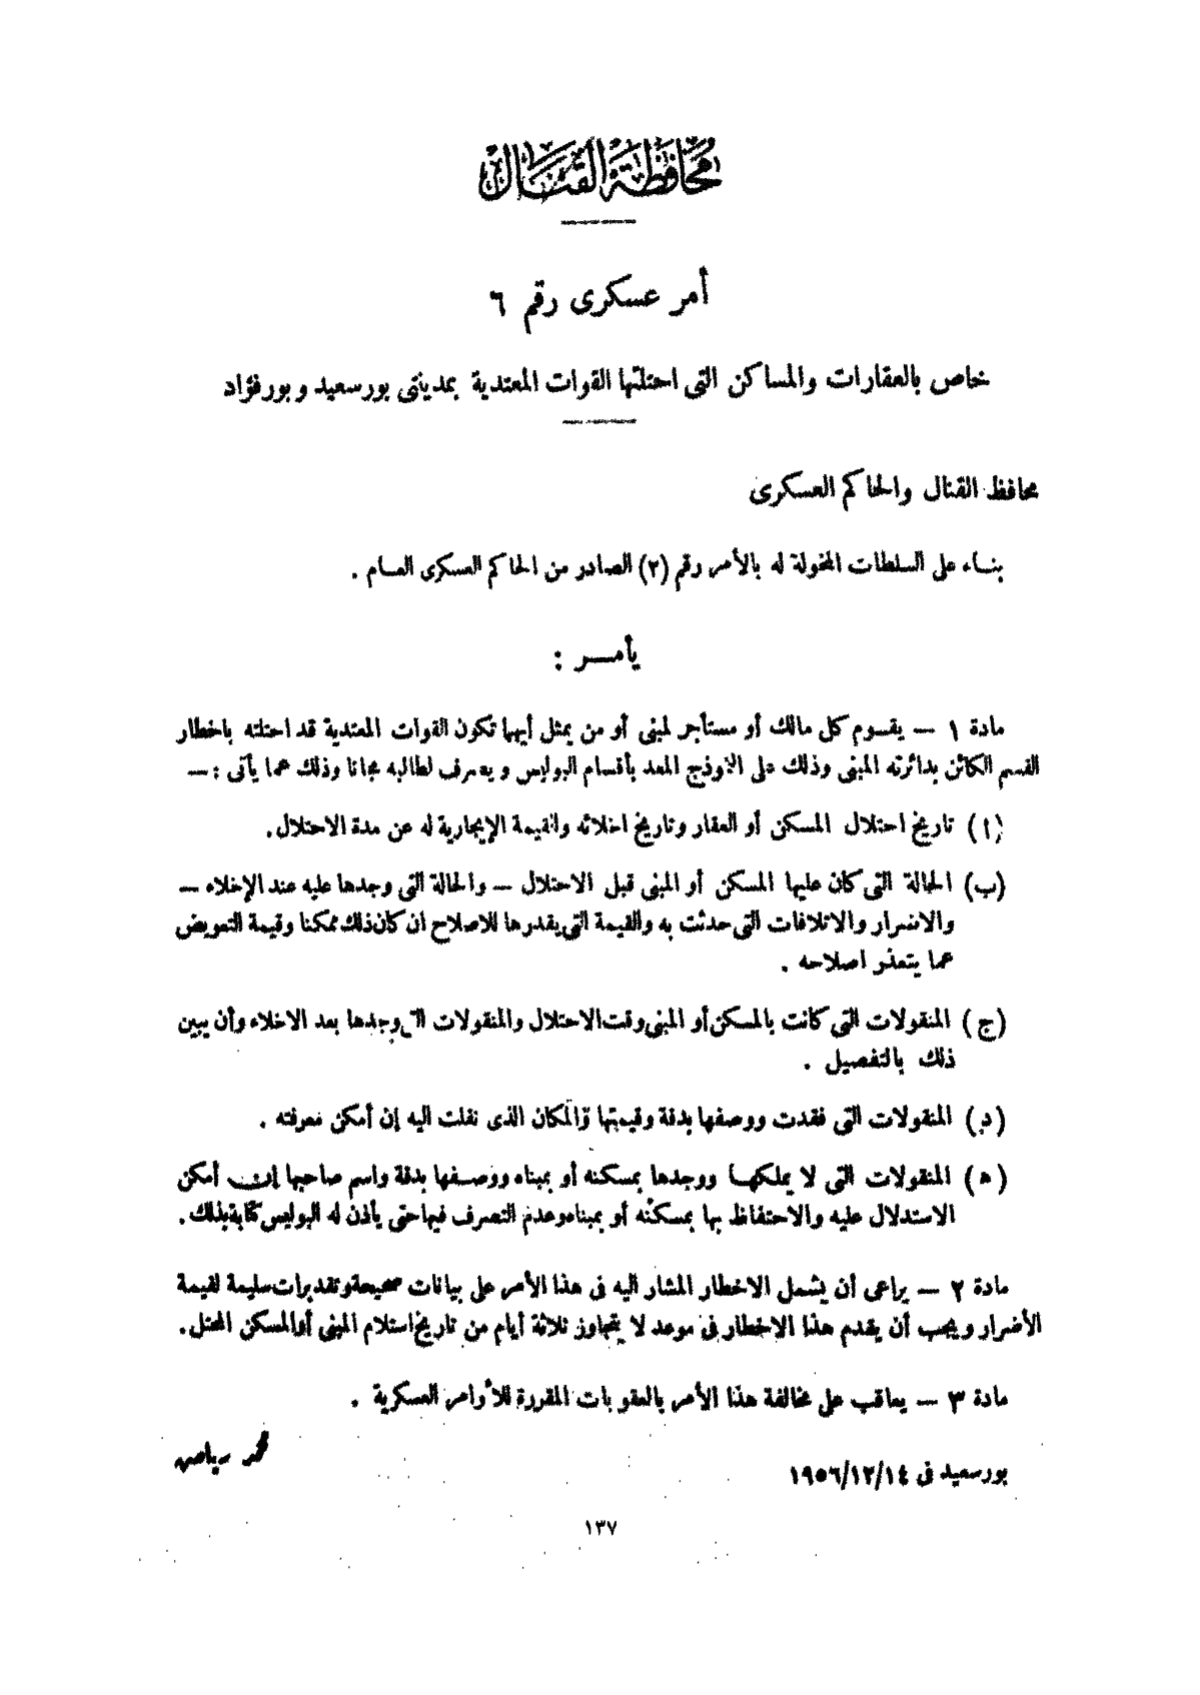 محافظة القنال
أمر عسكرى رقم ٦
خاص بالعقارات والمساكن التى احتلتها القوات المعتدية بمدينتى بورسعيد وبورفؤاد
محافظ القنال والحاكم العسكرى
بناء على السلطات المخولة له بالأمر رقم (٢) الصادر من الحاكم العسكرى العام .
يأمر :
مادة ١ — يقوم كل مالك أو مستأجر لمبنى أو من يمثل أيهما تكون القوات المعتدية قد احتلته باخطار
القسم الكائن بدائرته المبنى وذلك على الانموذج المعد بأقسام البوليس ويصرف لطالبه مجانا وذلك عما يأتى : —
(ا) تاريخ احتلال المسكن أو العقار وتاريخ اخلائه والقيمة الإيجارية له عن مدة الاحتلال .
(ب) الحالة التى كان عليها المسكن أو المبنى قبل الاحتلال — والحالة التى وجدها عليه عند الإخلاء —
والاضرار والاتلافات التى حدثت به والقيمة التى يقدرها للاصلاح ان كان ذلك ممكنا وقيمة التعويض
عما يتعذر اصلاحه .
(ج) المنقولات التى كانت بالمسكن أو المبنى وقت الاحتلال والمنقولات التى وجدها بعد الاخلاء وأن يبين
ذلك بالتفصيل .
(د) المنقولات التى فقدت ووصفها بدقة وقيمتها والمكان الذى نقلت اليه إن أمكن معرفته .
(ه) المنقولات التى لا يملكها ووجدها بمسكنه أو بمبناه ووصفها بدقة واسم صاحبها إن أمكن
الاستدلال عليه والاحتفاظ بها بمسكنه أو بمبناه وعدم التصرف فيها حتى يأذن له البوليس كتابة بذلك .
مادة ٢ — يراعى أن يشمل الاخطار المشار اليه فى هذا الأمر على بيانات صحيحة وتقديرات سليمة لقيمة
الأضرار ويجب أن يقدم هذا الاخطار فى موعد لا يتجاوز ثلاثة أيام من تاريخ استلام المبنى أو المسكن المحتل .
مادة ٣ — يعاقب على مخالفة هذا الأمر بالعقوبات المقررة للأوامر العسكرية .
محمد رياض
بورسعيد فى ١٩٥٦/١٢/١٤
١٣٧